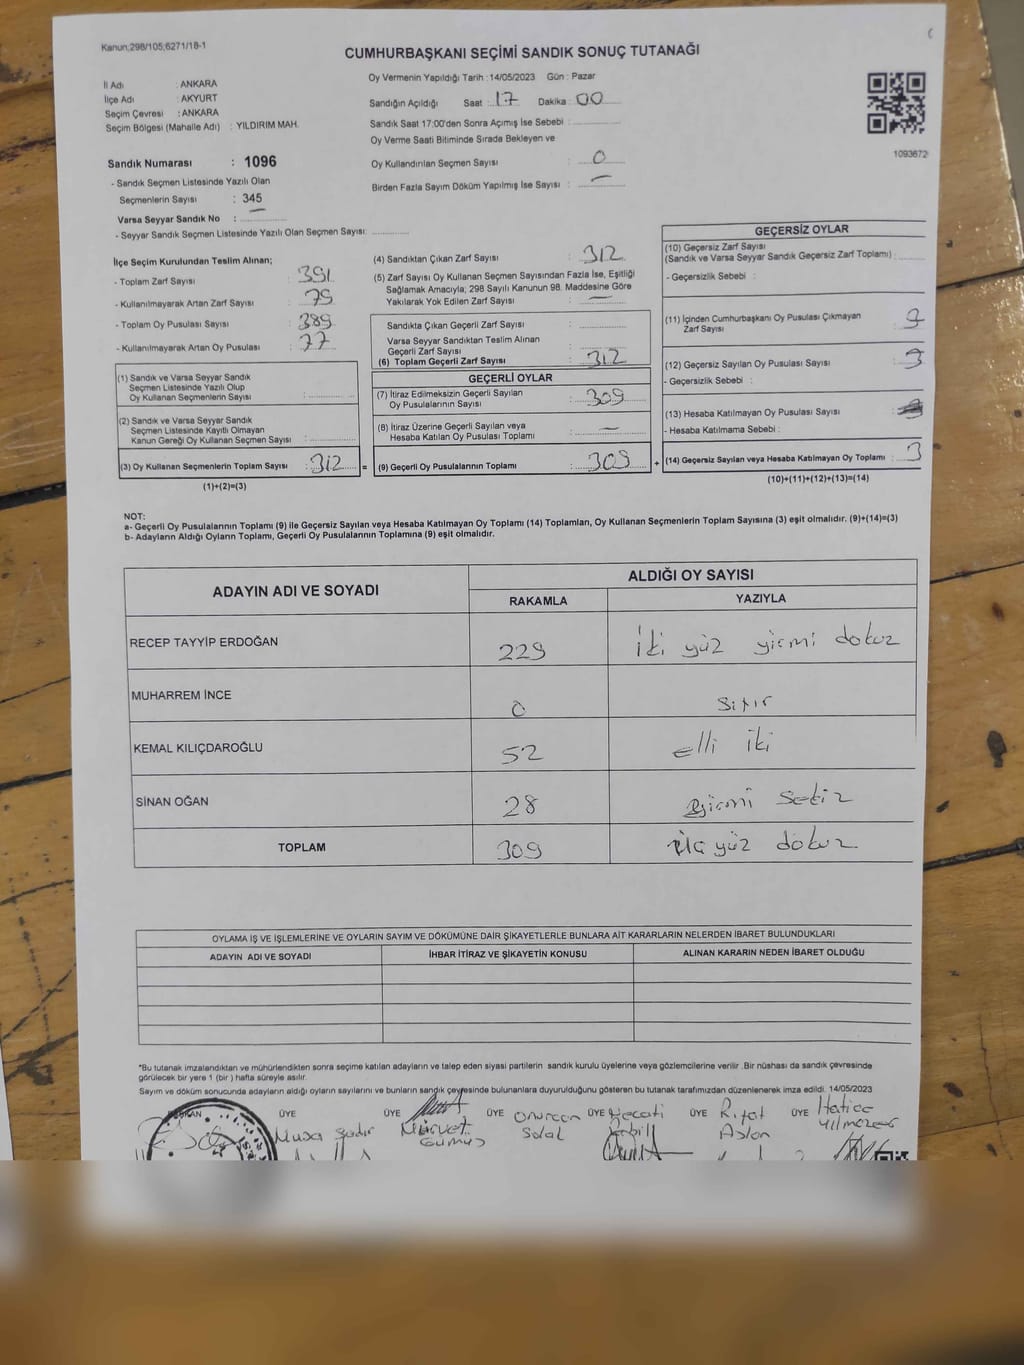 Kanun;298/105;6271/18-1
CUMHURBAŞKANI SEÇİMİ SANDIK SONUÇ TUTANAĞI
İl Adı : ANKARA
İlçe Adı : AKYURT
Seçim Çevresi : ANKARA
Seçim Bölgesi (Mahalle Adı) : YILDIRIM MAH.
Sandık Numarası : 1096
- Sandık Seçmen Listesinde Yazılı Olan
Seçmenlerin Sayısı : 345
Varsa Seyyar Sandık No : —
- Seyyar Sandık Seçmen Listesinde Yazılı Olan Seçmen Sayısı:
Oy Vermenin Yapıldığı Tarih : 14/05/2023 Gün : Pazar
Sandığın Açıldığı Saat : 17 Dakika : 00
Sandık Saat 17:00'den Sonra Açımış İse Sebebi :
Oy Verme Saati Bitiminde Sırada Bekleyen ve
Oy Kullandırılan Seçmen Sayısı : 0
Birden Fazla Sayım Döküm Yapılmış İse Sayısı : —
1093672
İlçe Seçim Kurulundan Teslim Alınan;
- Toplam Zarf Sayısı : 391
- Kullanılmayarak Artan Zarf Sayısı : 79
- Toplam Oy Pusulası Sayısı : 389
- Kullanılmayarak Artan Oy Pusulası : 77
(1) Sandık ve Varsa Seyyar Sandık
Seçmen Listesinde Yazılı Olup
Oy Kullanan Seçmenlerin Sayısı :
(2) Sandık ve Varsa Seyyar Sandık
Seçmen Listesinde Kayıtlı Olmayan
Kanun Gereği Oy Kullanan Seçmen Sayısı :
(3) Oy Kullanan Seçmenlerin Toplam Sayısı : 312 =
(1)+(2)=(3)
(4) Sandıktan Çıkan Zarf Sayısı : 312
(5) Zarf Sayısı Oy Kullanan Seçmen Sayısından Fazla İse, Eşitliği
Sağlamak Amacıyla; 298 Sayılı Kanunun 98. Maddesine Göre
Yakılarak Yok Edilen Zarf Sayısı : —
Sandıkta Çıkan Geçerli Zarf Sayısı :
Varsa Seyyar Sandıktan Teslim Alınan
Geçerli Zarf Sayısı :
(6) Toplam Geçerli Zarf Sayısı : 312
GEÇERLİ OYLAR
(7) İtiraz Edilmeksizin Geçerli Sayılan
Oy Pusulalarının Sayısı : 309
(8) İtiraz Üzerine Geçerli Sayılan veya
Hesaba Katılan Oy Pusulası Toplamı : —
(9) Geçerli Oy Pusulalarının Toplamı : 309 +
GEÇERSİZ OYLAR
(10) Geçersiz Zarf Sayısı
(Sandık ve Varsa Seyyar Sandık Geçersiz Zarf Toplamı) :
- Geçersizlik Sebebi :
(11) İçinden Cumhurbaşkanı Oy Pusulası Çıkmayan
Zarf Sayısı :
(12) Geçersiz Sayılan Oy Pusulası Sayısı : 3
- Geçersizlik Sebebi :
(13) Hesaba Katılmayan Oy Pusulası Sayısı :
- Hesaba Katılmama Sebebi :
(14) Geçersiz Sayılan veya Hesaba Katılmayan Oy Toplamı : 3
(10)+(11)+(12)+(13)=(14)
NOT:
a- Geçerli Oy Pusulalarının Toplamı (9) ile Geçersiz Sayılan veya Hesaba Katılmayan Oy Toplamı (14) Toplamları, Oy Kullanan Seçmenlerin Toplam Sayısına (3) eşit olmalıdır. (9)+(14)=(3)
b- Adayların Aldığı Oyların Toplamı, Geçerli Oy Pusulalarının Toplamına (9) eşit olmalıdır.
ADAYIN ADI VE SOYADI ALDIĞI OY SAYISI
RAKAMLA YAZIYLA
RECEP TAYYİP ERDOĞAN 229 İki yüz yirmi dokuz
MUHARREM İNCE 0 Sıfır
KEMAL KILIÇDAROĞLU 52 elli iki
SİNAN OĞAN 28 yirmi Sekiz
TOPLAM 309 üç yüz dokuz
OYLAMA İŞ VE İŞLEMLERİNE VE OYLARIN SAYIM VE DÖKÜMÜNE DAİR ŞİKAYETLERLE BUNLARA AİT KARARLARIN NELERDEN İBARET BULUNDUKLARI
ADAYIN ADI VE SOYADI İHBAR İTİRAZ VE ŞİKAYETİN KONUSU ALINAN KARARIN NEDEN İBARET OLDUĞU
*Bu tutanak imzalandıktan ve mühürlendikten sonra seçime katılan adayların ve talep eden siyasi partilerin sandık kurulu üyelerine veya gözlemcilerine verilir. Bir nüshası da sandık çevresinde
görülecek bir yere 1 (bir) hafta süreyle asılır.
Sayım ve döküm sonucunda adayların aldığı oyların sayılarını ve bunların sandık çevresinde bulunanlara duyurulduğunu gösteren bu tutanak tarafımızdan düzenlenerek imza edildi. 14/05/2023
BAŞKAN ÜYE ÜYE ÜYE ÜYE ÜYE ÜYE
Musa Mürvet Gümüş Onurcan Necati Rıfat Aslan Hatice